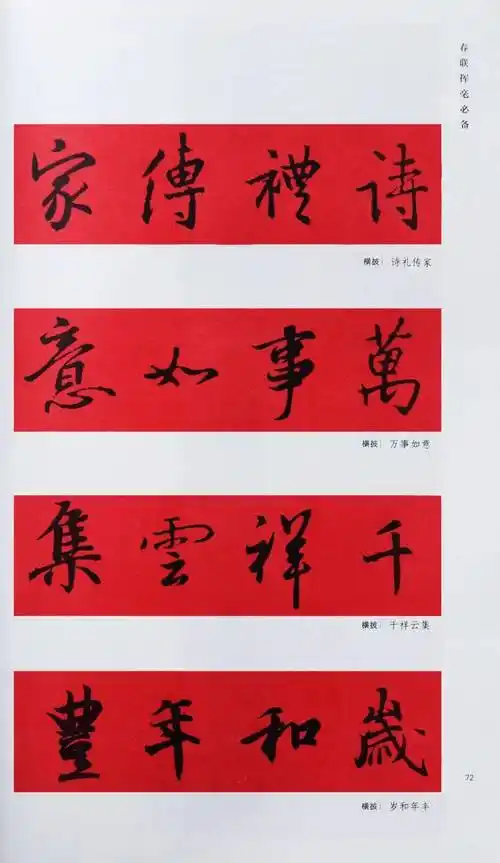 春联挥毫必备
詩禮傳家
横披：诗礼传家
萬事如意
横披：万事如意
千祥雲集
横披：千祥云集
歲和年豐
横披：岁和年丰
72